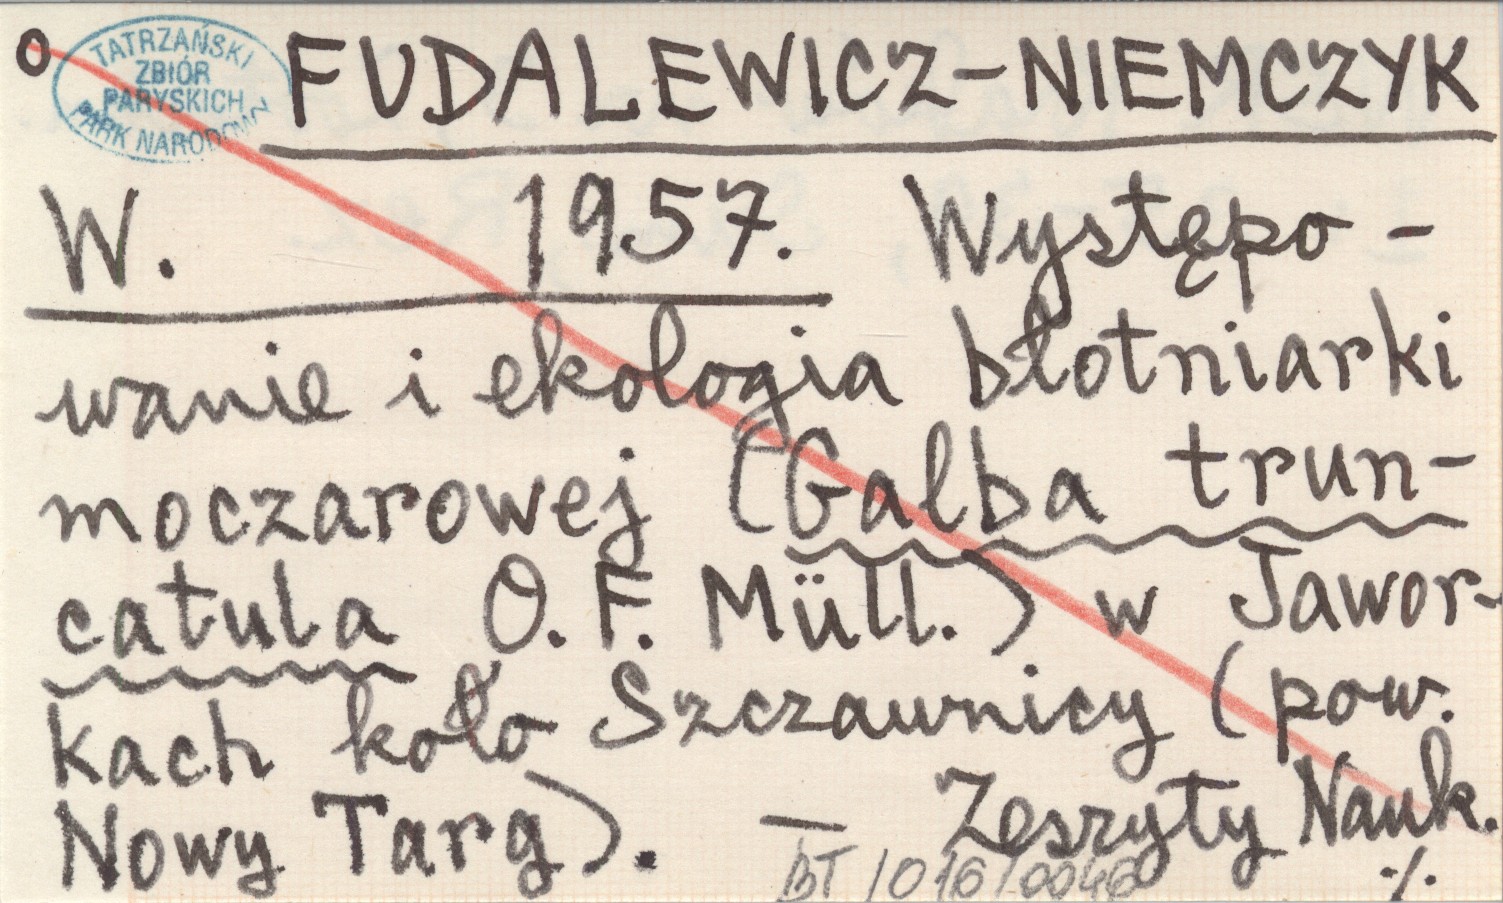 o
TATRZAŃSKI
ZBIÓR
PARYSKICH
PARK NARODOWY
FUDALEWICZ-NIEMCZYK
W. 1957. Występo-
wanie i ekologia błotniarki
moczarowej (Galba trun-
catula O. F. Müll.) w Jawor-
kach koło Szczawnicy (pow.
Nowy Targ). — Zeszyty Nauk.
BT/016/0046 ./.